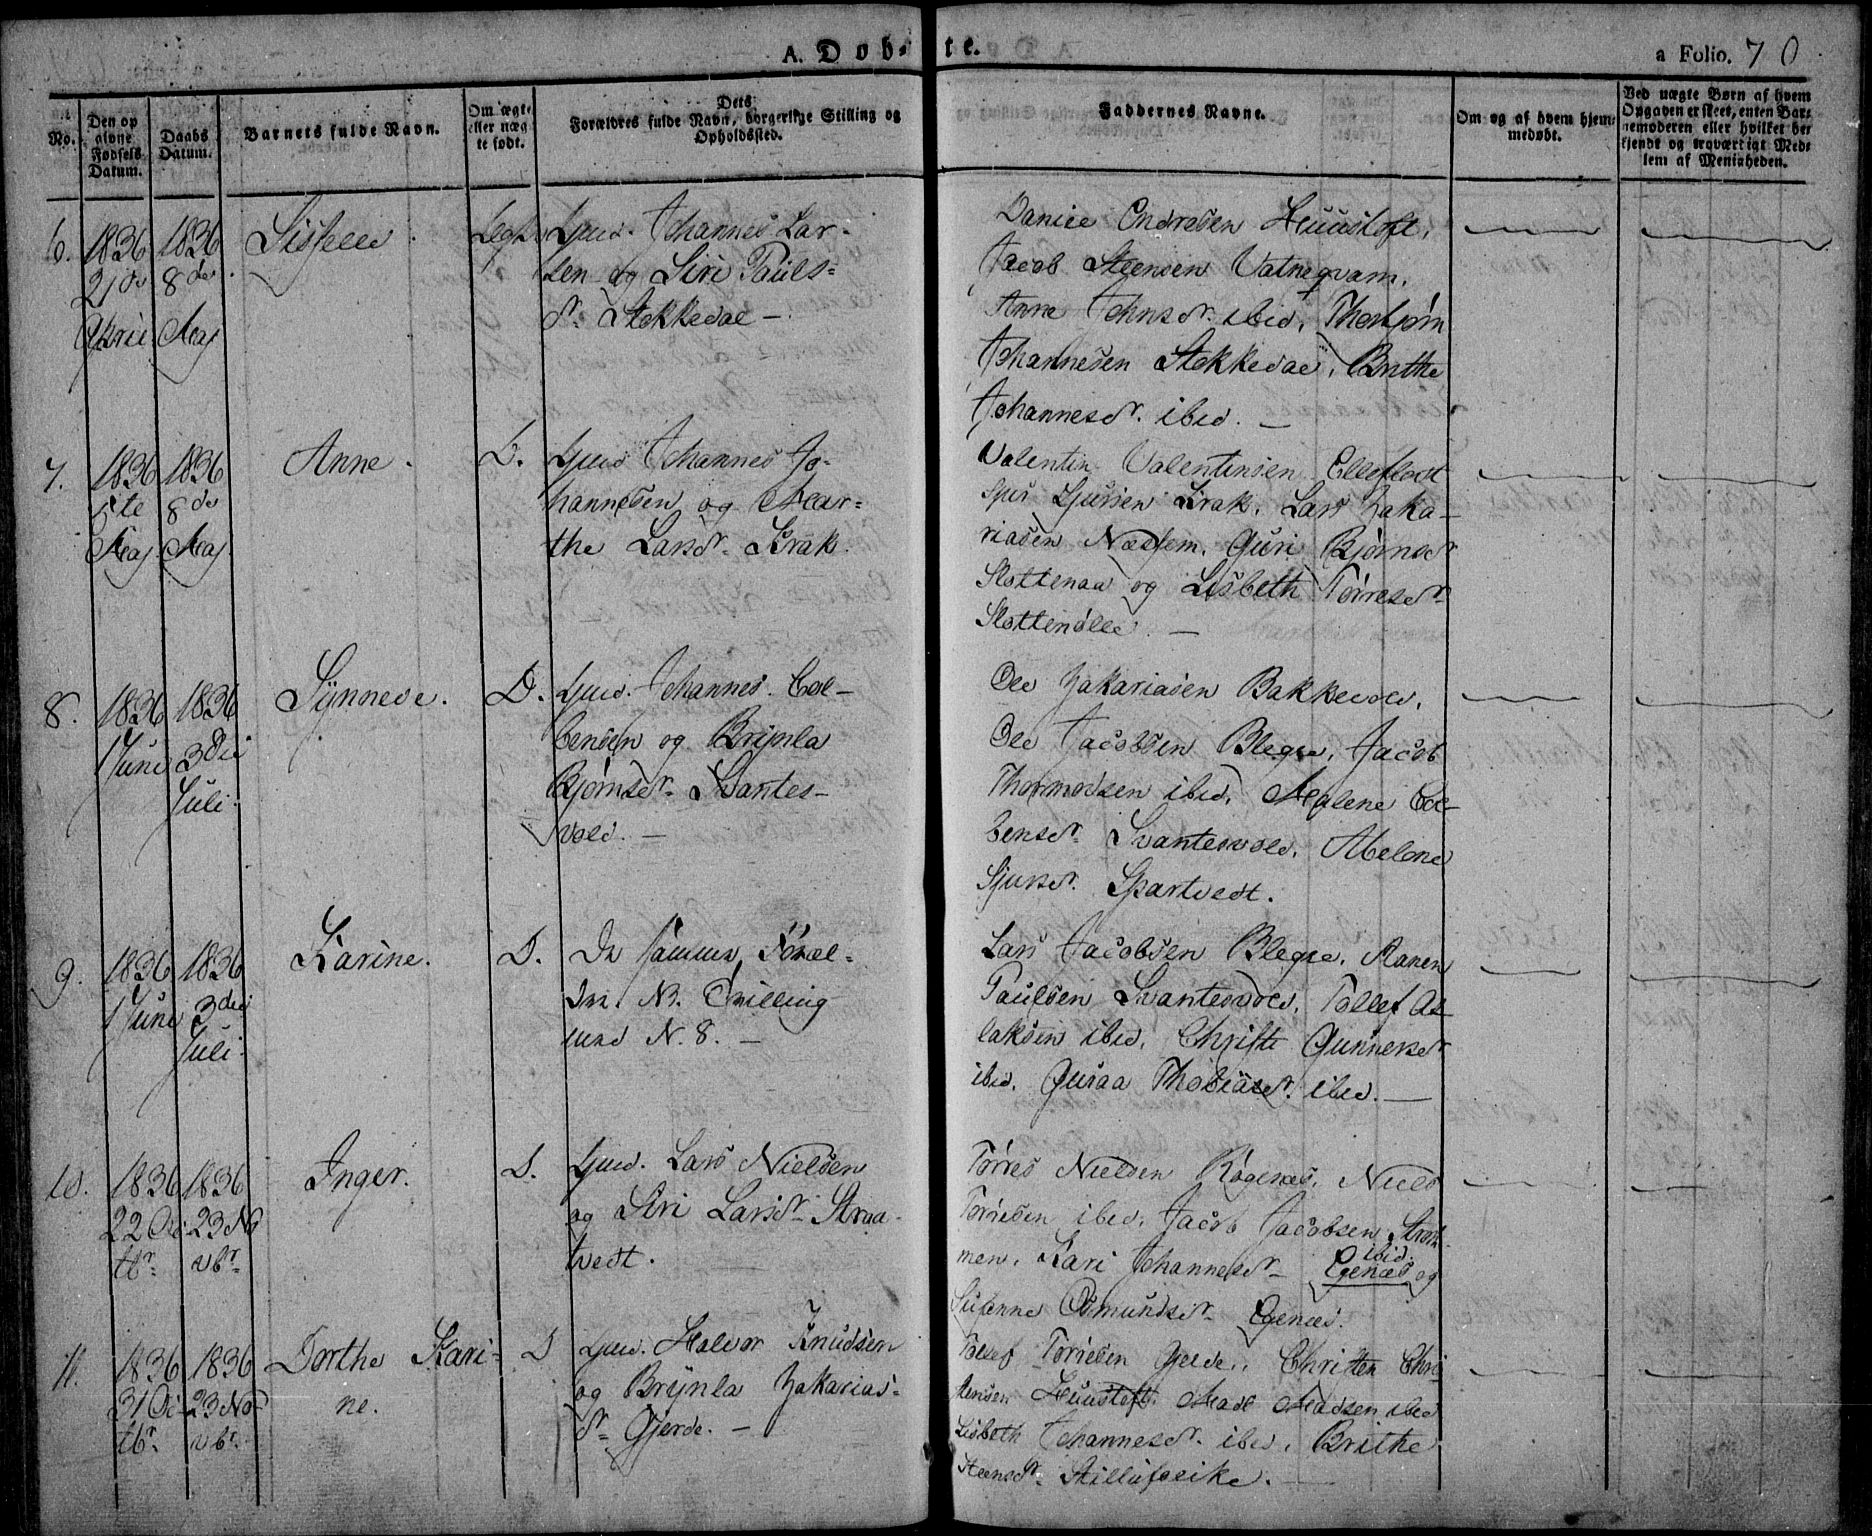 A. Dob-
te.
a Folio. 70
No.
Den op
givne
Fødsels
Datum.
Daabs
Datum.
Barnets fulde Navn.
Om ægte
eller uæg
te født.
Dets
Forældres fulde Navn, borgerlige Stilling og
Opholdssted.
Faddernes Navne.
Om og af hvem hjem-
medøbt.
Ved uægte Børn af hvem
Opgaven er skeet, enten Bar-
nemoderen eller hvilket be
kjendt og troværdigt Med-
lem af Menigheden.
6.
1836
21de
April
1836
8de
Maj
Sisselle
Johannes Lar-
sen og Siri Pauls-
dr. Stokkedal -
Daniel Endresen Huustoft,
Jacob Steensen Vatneqvam,
Anne Johnsdr. ibid, Thorbjørn
Johannesen Stokkedal, Brithe
Johannesdr. ibid. -
7.
1836
1836
8de
Maj
Maj
Anne.
Johannes Jo-
hannesen og Mar-
the Larsdr. Krak.
Valentin Valentinsen
Krak, Lars Zaka-
riasen Næssem, Guri Bjørnsdr
og Lisbeth Tørresdr
8.
1836
1 Juni
1836
3die
Juli.
Synneve.
D.
Johannes Col-
bensen og Brynla
Bjørnsdr. Svantes-
vold. -
Ole Zakariasen Bakkevold,
Ole Jacobsen Blegse, Jacob
Thormodsen ibid, Malene Col-
bensdr. Svantesvold, Abelone
Sjursdr. Spartvedt.
9.
1836
1 Juni
1836
3die
Juli.
Karine.
D.
De samme Foræl-
dre. NB. Tvilling
med N. 8. -
Lars Jacobsen Blegse,
Paulsen Svantesvold, Tollef As-
laksen ibid, Christi Gunnersdr
ibid, Thobiasdr. ibid. -
10.
1836
22 Oc-
tbr.
1836
23 No
vbr.
Inger.
Lars Nielsen
og Siri Larsdr. Straa-
tvedt.
Tørres Nielsen Røgenes, Niels
Tørresen ibid, Jacob Jacobsen
men, Kari Johannesdr. Egenæs og
ibid.
Susanne Osmundsdr. Egenæs.
11.
1836
31 Oc-
tbr.
1836
23 No-
vbr.
Dorthe Kari-
ne.
Halvor Knudsen
og Brynla Zakarias-
dr. Gjerde. -
Tollef Tørresen Gjerde, Christen Chri
stensen Huustoft, Mads Madsen ibid
Lisbeth Johannesdr. ibid, Brithe
Steensdr.